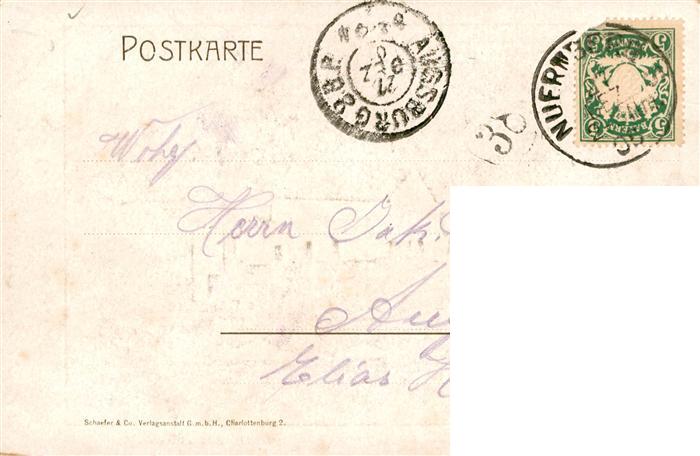 POSTKARTE
AUGSBURG 2 B.P.
NUERNBERG
5 BAYERN 5
Wohg.
Herrn Jak.
Aug
Elias H
Schaefer & Co. Verlagsanstalt G.m.b.H., Charlottenburg 2.